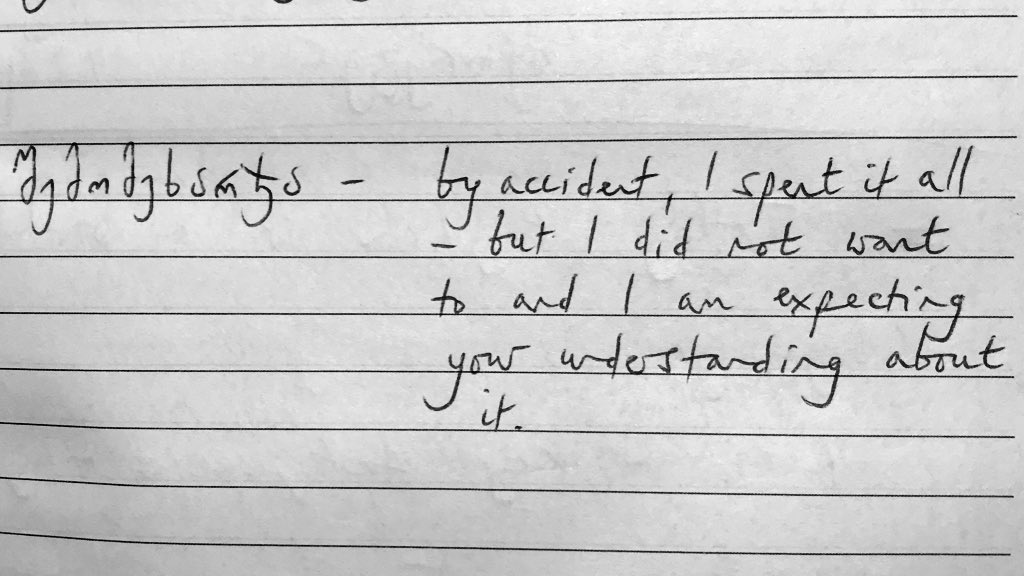 შემომეხარჯა - by accident, I spent it all
- but I did not want
to and I am expecting
your understanding about
it.